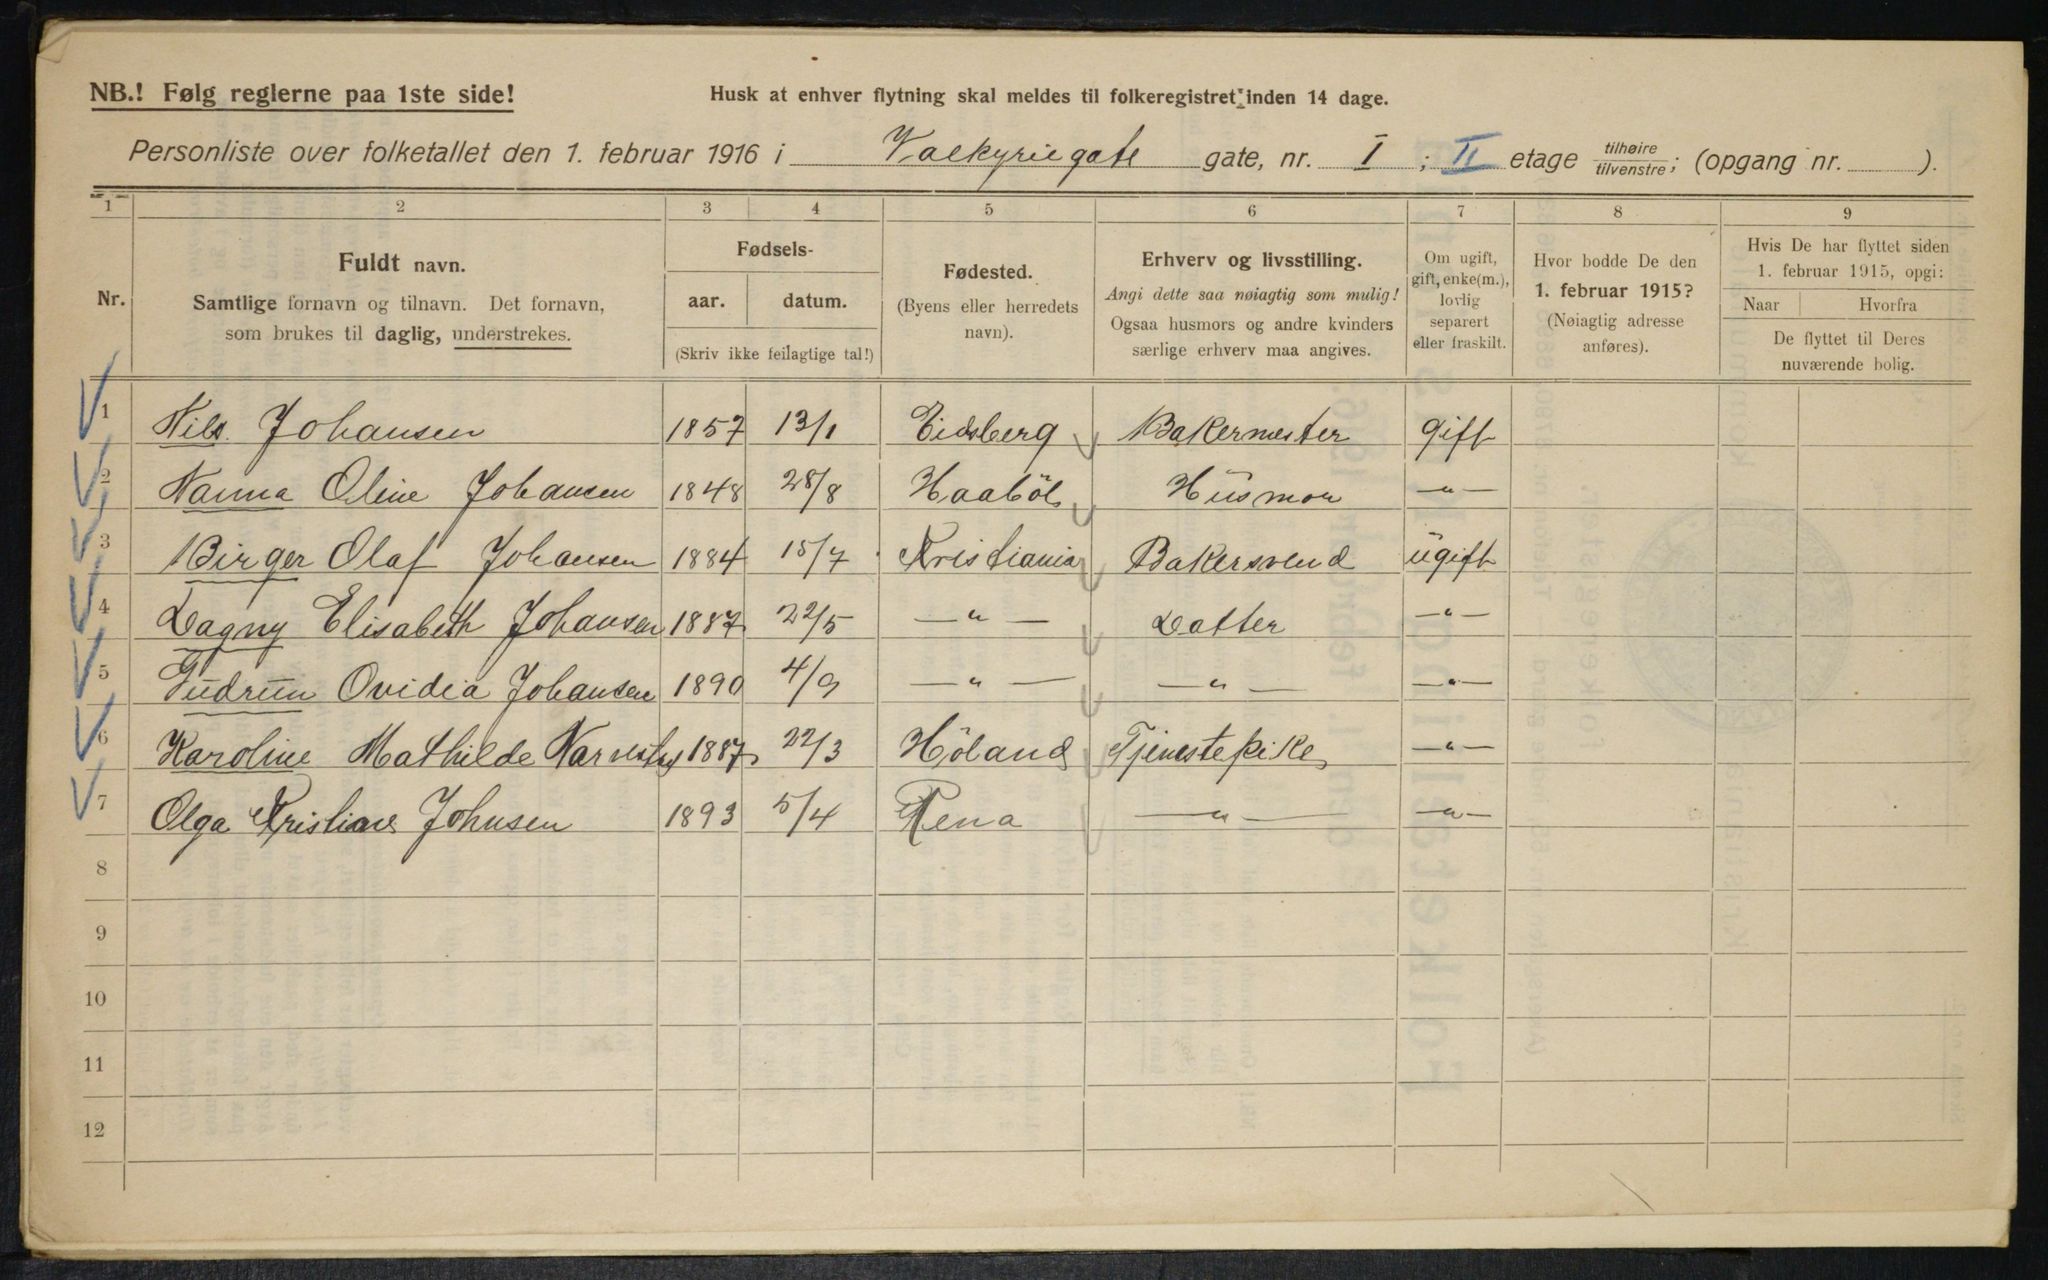 NB.! Følg reglerne paa 1ste side!
Husk at enhver flytning skal meldes til folkeregistret inden 14 dage.
Personliste over folketallet den 1. februar 1916 i Valkyriegate gate, nr. I ; II etage tilhøire/tilvenstre; (opgang nr. ).
1 2 3 4 5 6 7 8 9
Nr.
Fuldt navn.
Samtlige fornavn og tilnavn. Det fornavn,
som brukes til daglig, understrekes.
Fødsels-
aar. datum.
(Skriv ikke feilagtige tal!)
Fødested.
(Byens eller herredets
navn).
Erhverv og livsstilling.
Angi dette saa nøiagtig som mulig!
Ogsaa husmors og andre kvinders
særlige erhverv maa angives.
Om ugift,
gift, enke(m.),
lovlig
separert
eller fraskilt.
Hvor bodde De den
1. februar 1915?
(Nøiagtig adresse
anføres).
Hvis De har flyttet siden
1. februar 1915, opgi:
Naar Hvorfra
De flyttet til Deres
nuværende bolig.
1 Nils Johansen 1857 13/1 Eidsberg Bakermester gift
2 Nanna Oline Johansen 1848 28/8 Haaböl Husmor —"—
3 Birger Olaf Johansen 1884 15/7 Kristiania Bakersvend ugift
4 Dagny Elisabeth Johansen 1887 22/5 —"— Datter —"—
5 Gudrun Ovidia Johansen 1890 4/9 —"— —"— —"—
6 Karoline Mathilde 1887 22/3 Höland Tjenestepike —"—
7 Olga Kristiane Johnsen 1893 5/4 Rena —"— —"—
8
9
10
11
12